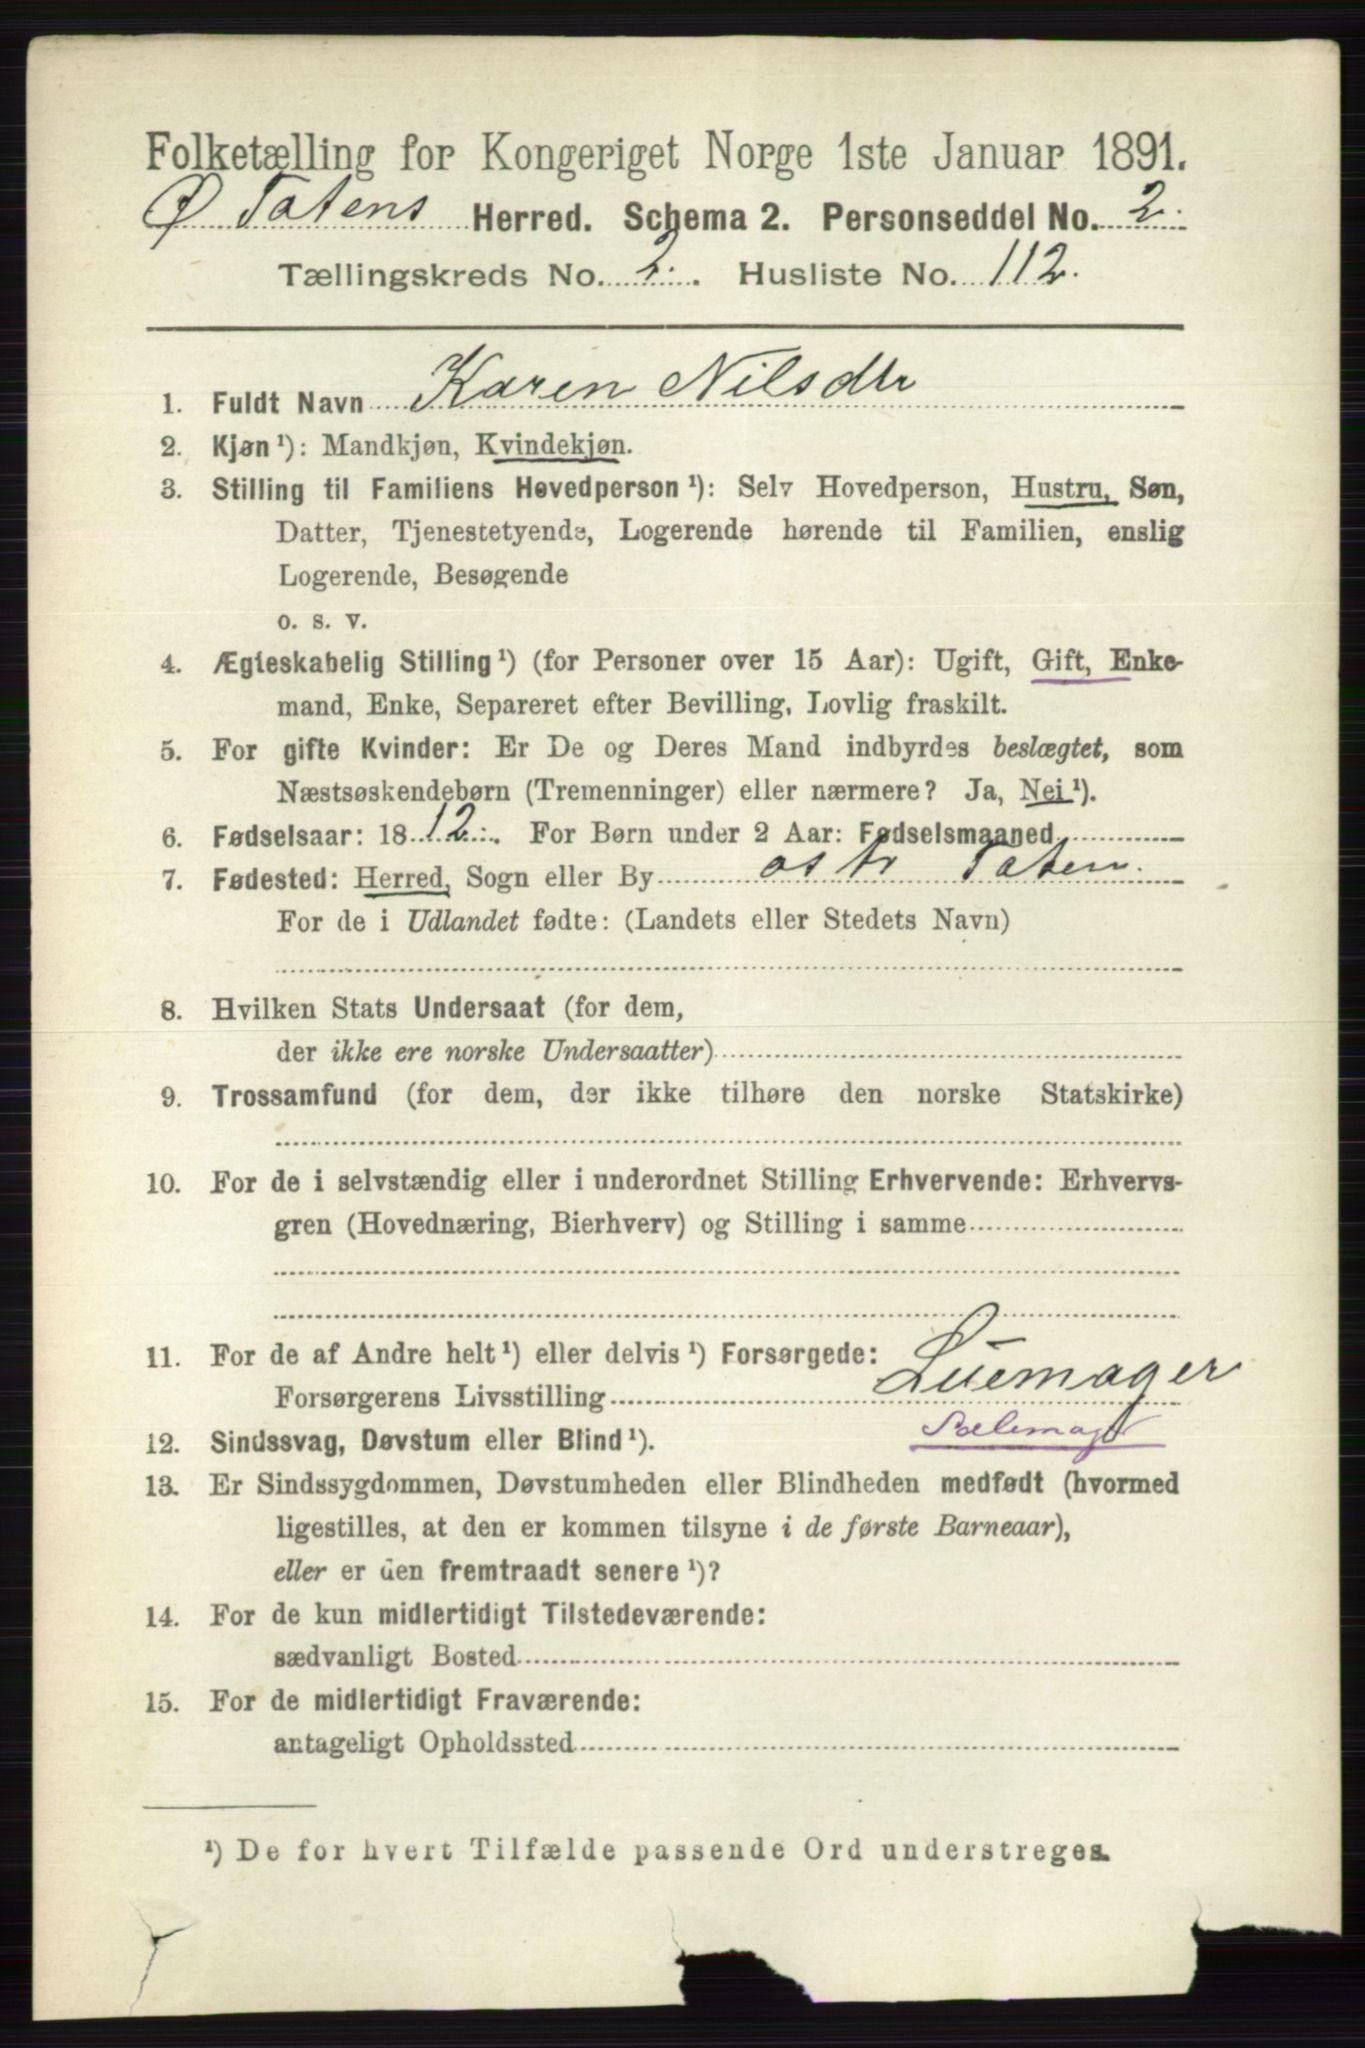 Folketælling for Kongeriget Norge 1ste Januar 1891.
Ø Totens Herred. Schema 2. Personseddel No. 2.
Tællingskreds No. 2. Husliste No. 112.
1. Fuldt Navn Karen Nilsdtr
2. Kjøn¹): Mandkjøn, Kvindekjøn.
3. Stilling til Familiens Hovedperson¹): Selv Hovedperson, Hustru, Søn,
Datter, Tjenestetyende, Logerende hørende til Familien, enslig
Logerende, Besøgende
o. s. v.
4. Ægteskabelig Stilling¹) (for Personer over 15 Aar): Ugift, Gift, Enke-
mand, Enke, Separeret efter Bevilling, Lovlig fraskilt.
5. For gifte Kvinder: Er De og Deres Mand indbyrdes beslægtet, som
Næstsøskendebørn (Tremenninger) eller nærmere? Ja, Nei¹).
6. Fødselsaar: 1812. For Børn under 2 Aar: Fødselsmaaned
7. Fødested: Herred, Sogn eller By ostr Toten.
For de i Udlandet fødte: (Landets eller Stedets Navn)
8. Hvilken Stats Undersaat (for dem,
der ikke ere norske Undersaatter)
9. Trossamfund (for dem, der ikke tilhøre den norske Statskirke)
10. For de i selvstændig eller i underordnet Stilling Erhvervende: Erhvervs-
gren (Hovednæring, Bierhverv) og Stilling i samme
11. For de af Andre helt¹) eller delvis¹) Forsørgede:
Forsørgerens Livsstilling
12. Sindssvag, Døvstum eller Blind¹).
13. Er Sindssygdommen, Døvstumheden eller Blindheden medfødt (hvormed
ligestilles, at den er kommen tilsyne i de første Barneaar),
eller er den fremtraadt senere¹)?
14. For de kun midlertidigt Tilstedeværende:
sædvanligt Bosted
15. For de midlertidigt Fraværende:
antageligt Opholdssted
¹) De for hvert Tilfælde passende Ord understreges.